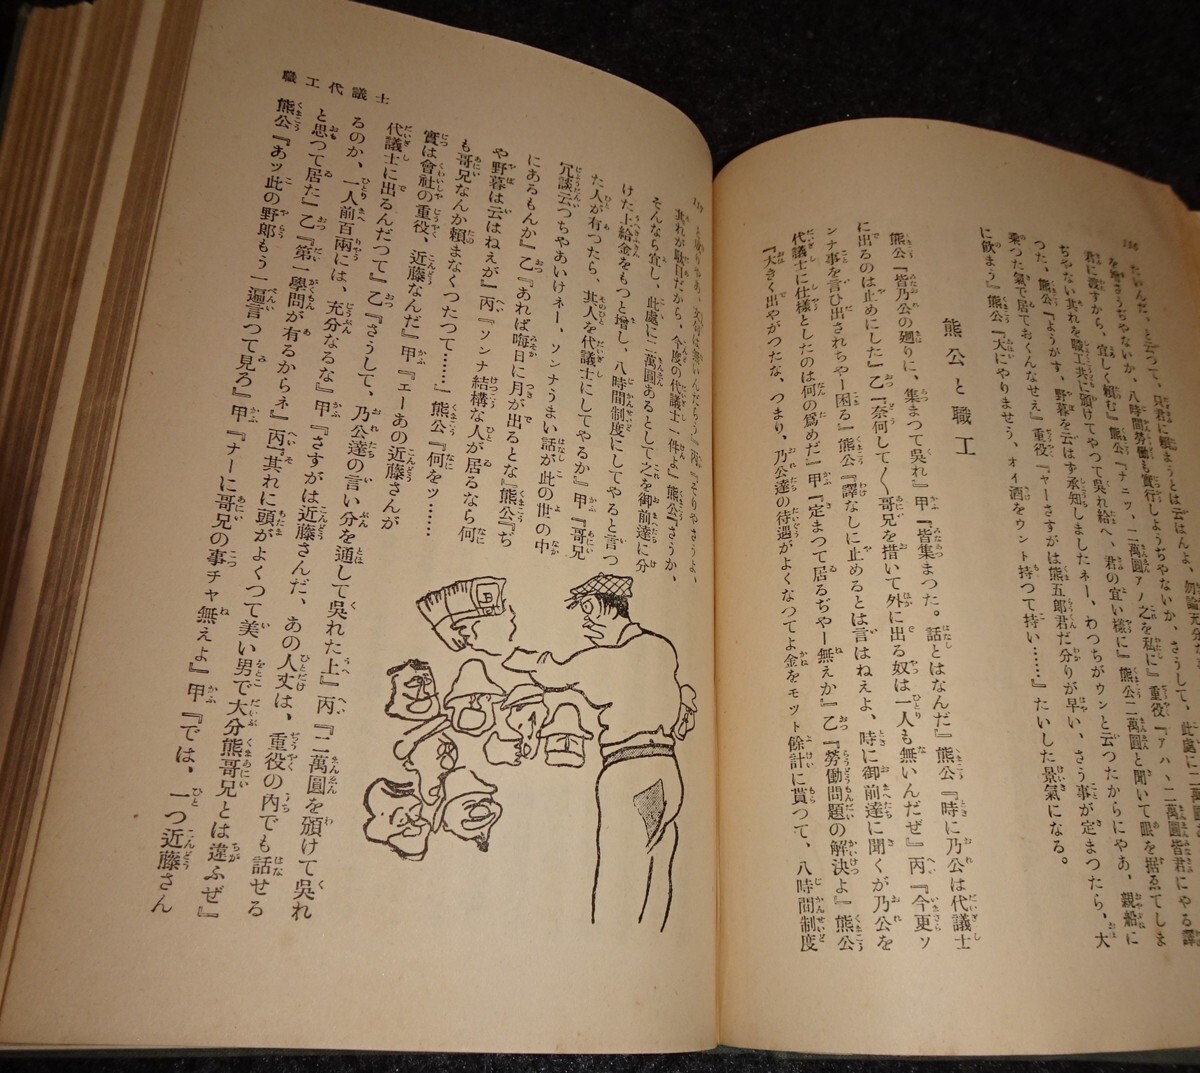 116
たいんだ、と云つて、只君に頼まうとは云はねえよ、勿論充分な
を地さうぢやないか、八時間勞働も實行しようぢやないか、さうして、此處に二萬圓
君に渡すから、宜しく頼む』熊公『ナニッ、二萬圓アノ之を私に』重役『アハヽ二萬圓皆君にやる譯
ちやない其れを職工共に頒けてやつて呉れ給へ、君の宜い樣に』熊公二萬圓と聞いて眼を据ゑてしま
つた、熊公『ようがす、野暮を云はず承知しましたネー、わつちがウンと云つたからにやあ、親船に
乘つた氣で居ておくんなせえ』重役『ャーさすがは熊五郎君だ分りが早い、さう事が定まつたら、大
に飮まう』熊公『大にやりませう、オイ酒をウント持つて持い……』たいした景氣になる。
熊公と職工
熊公『皆乃公の廻りに、集まつて呉れ』甲『皆集まつた。話とはなんだ』熊公『時に乃公は代議士
に出るのは止めにした』乙『奈何して〳〵哥兄を措いて外に出る奴は一人も無いんだぜ』丙『今更ソ
ンナ事を言ひ出されちやー困る』熊公『譯なしに止めるとは言はねえよ、時に御前達に聞くが乃公を
代議士に仕様としたのは何の爲めだ』甲『定まつて居るぢやー無えか』乙『勞働問題の解決よ』熊公
『大きく出やがつたな、つまり、乃公達の待遇がよくなつてよ金をモツト餘計に貰つて、八時間制度
117
と成りやあ、文句は無いんだらう』丙『そりやさうよ、
其れが駄目だから、今度の代議士一件よ』熊公『さうか、
そんなら宜し、此處に二萬圓あるとして之を御前達に分
けた上給金をもつと増し、八時間制度にしてやると言つ
た人が有つたら、其人を代議士にしてやるか』甲『哥兄
冗談云つちやあいけネー、ソンナうまい話が此の世の中
にあるもんか』乙『あれば晦日に月が出るとな』熊公『ち
や野暮は云はねえが』丙『ソンナ結構な人が居るなら何
も哥兄なんか頼まなくつたつて……』熊公『何をッ……
實は會社の重役、近藤なんだ』甲『エーあの近藤さんが
代議士に出るんだつて』乙『さうして、乃公達の言い分を通して呉れた上』丙『二萬圓を頒けて呉れ
るのか、一人前百兩には、充分なるな』甲『さすがは近藤さんだ、あの人丈は、重役の內でも話せる
と思つて居た』乙『第一學問が有るからネ』丙『其れに頭がよくつて美い男で大分熊哥兄とは違ふぜ』
熊公『あッ此の野郎もう一遍言つて見ろ』甲『ナーに哥兄の事チャ無えよ』甲『では、一つ近藤さん
職工代議士